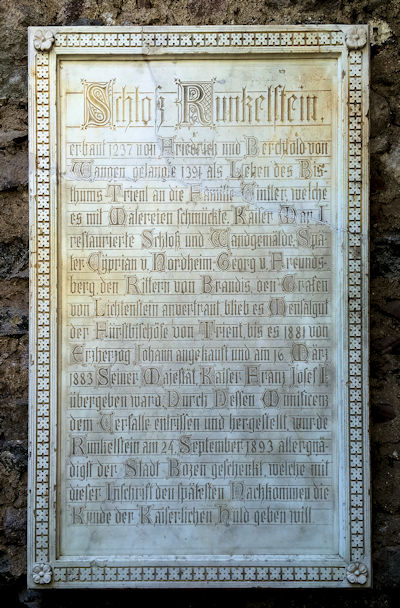 Schloß Runkelstein,
erbaut 1237 von Friedrich und Berchtold von
Wangen gelangte 1391 als Lehen des Bis-
thums Trient an die Familie Vintler, welche
es mit Malereien schmückte. Kaiser Max I.
restaurierte Schloß und Wandgemälde. Spä-
ter Cyprian v. Nordheim, Georg v. Freunds-
berg, den Rittern von Brandis, den Grafen
von Lichtenstein anvertraut, blieb es Mensalgut
der Fürstbischöfe von Trient, bis es 1881 von
Erzherzog Johann angekauft und am 16. März
1883 Seiner Majestät, Kaiser Franz Josef I.
übergeben ward. Durch Dessen Munificenz
dem Verfalle entrissen und hergestellt, wurde
Runkelstein am 24. September 1893 allergnä-
digst der Stadt Bozen geschenkt, welche mit
dieser Inschrift den spätesten Nachkommen die
Kunde der Kaiserlichen Huld geben will.